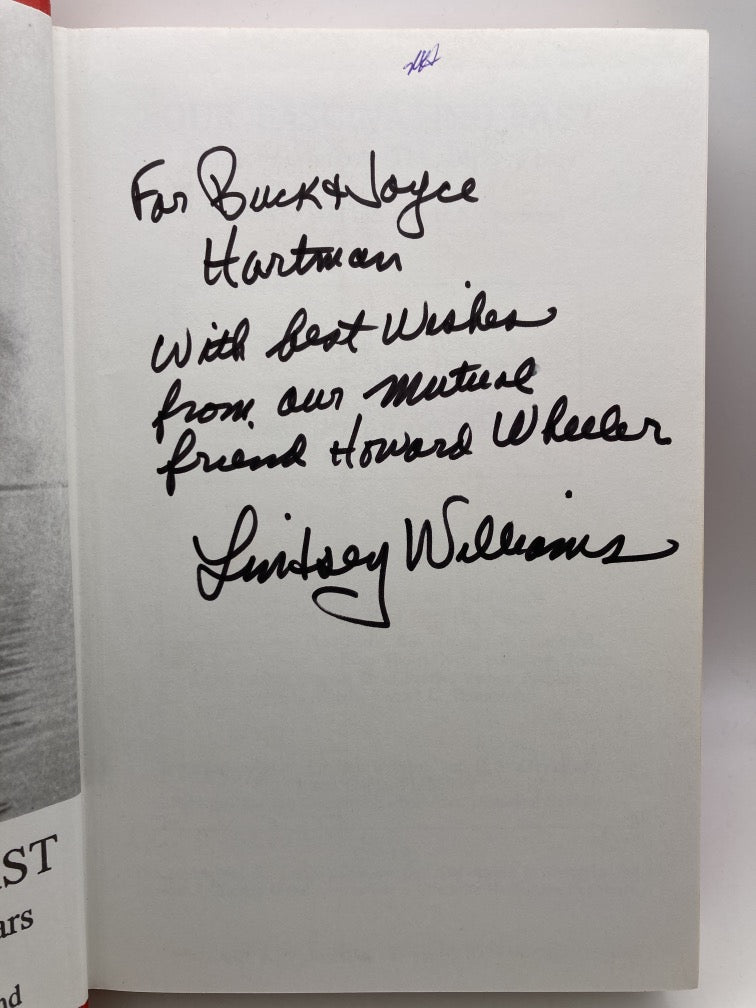 For Buck & Joyce
Hartman
With best Wishes
from our mutual
friend Howard Wheeler
Lindsey Williams
ST
ars
nd